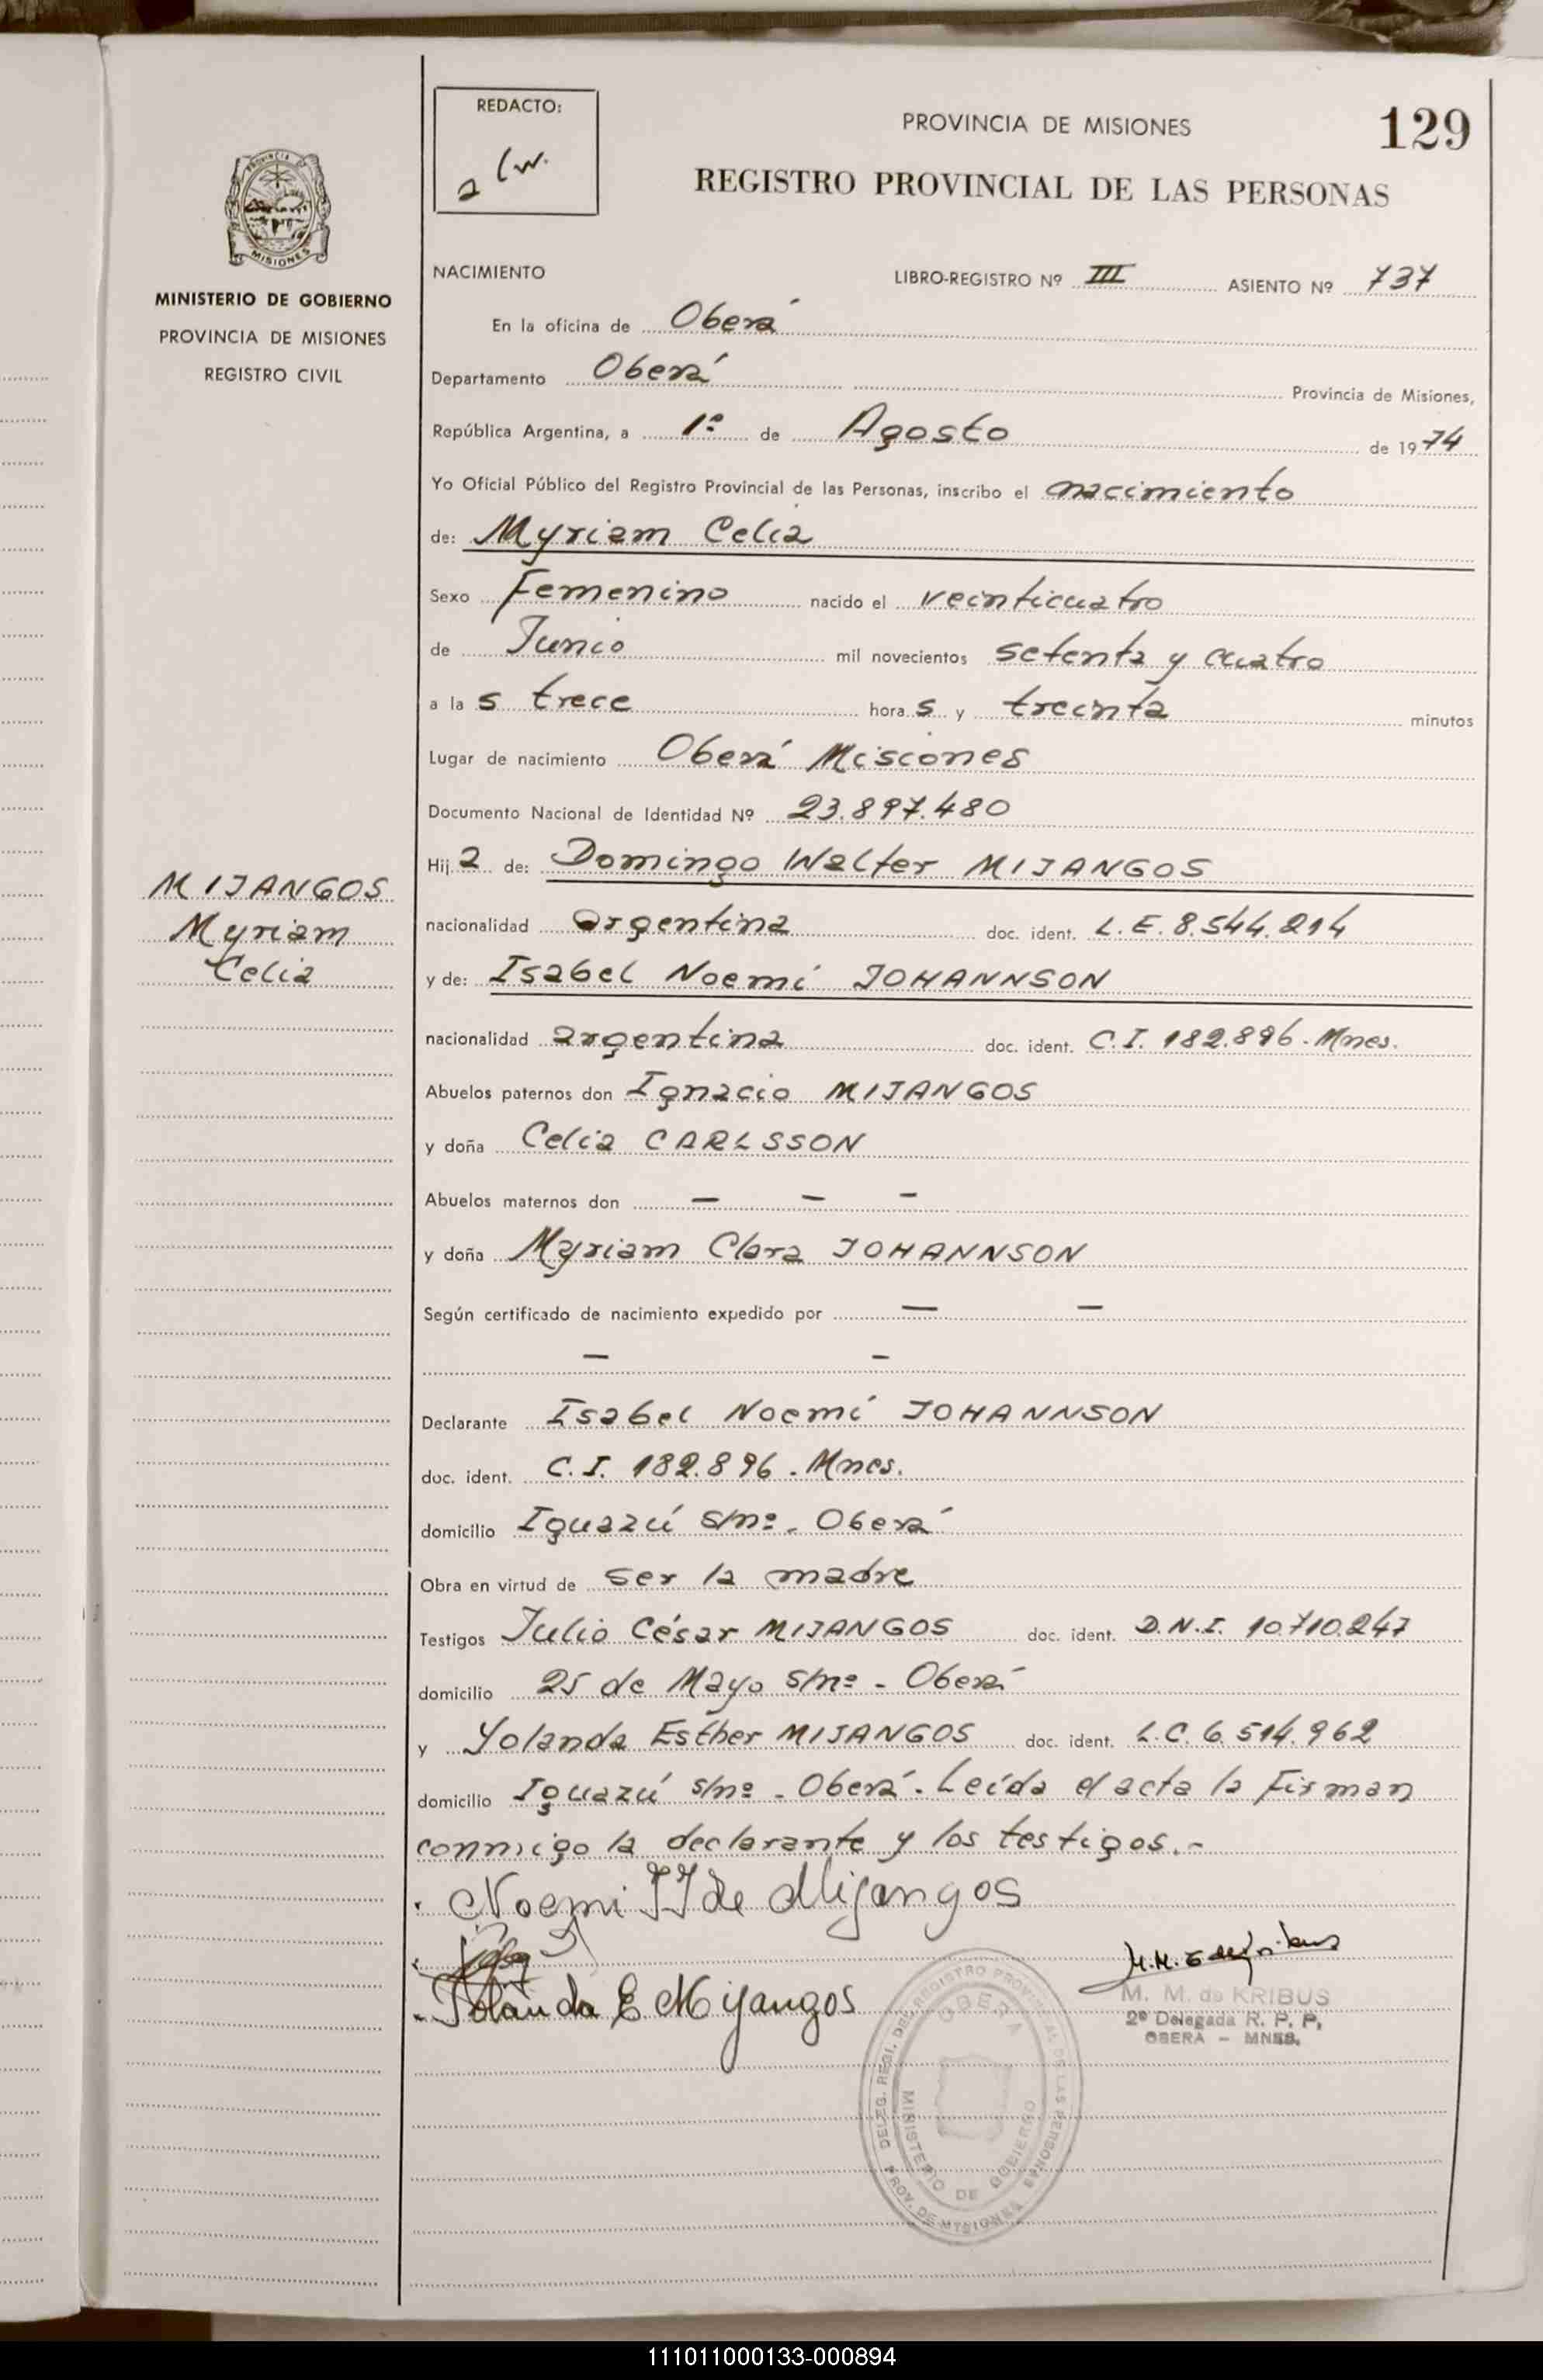 REDACTO:
PROVINCIA DE MISIONES
129
REGISTRO PROVINCIAL DE LAS PERSONAS
PROVINCIA
MISIONES
MINISTERIO DE GOBIERNO
PROVINCIA DE MISIONES
REGISTRO CIVIL
NACIMIENTO LIBRO-REGISTRO Nº III ASIENTO Nº 737
En la oficina de Oberá
Departamento Oberá Provincia de Misiones,
República Argentina, a 1º de Agosto de 1974
Yo Oficial Público del Registro Provincial de las Personas, inscribo el nacimiento
de: Myriam Celia
Sexo Femenino nacido el veinticuatro
de Junio mil novecientos setenta y cuatro
a la s trece hora s y treinta minutos
Lugar de nacimiento Oberá Misiones
Documento Nacional de Identidad Nº 23.897.480
Hij a de: Domingo Walter MIJANGOS
MIJANGOS
Myriam
Celia
nacionalidad argentina doc. ident. L.E. 8.544.214
y de: Isabel Noemí JOHANNSON
nacionalidad argentina doc. ident. C.I. 182.896. Mnes.
Abuelos paternos don Ignacio MIJANGOS
y doña Celia CARLSSON
Abuelos maternos don — — —
y doña Myriam Clara JOHANNSON
Según certificado de nacimiento expedido por — —
— —
Declarante Isabel Noemí JOHANNSON
doc. ident. C.I. 182.896. Mnes.
domicilio Iguazú s/nº. Oberá
Obra en virtud de ser la madre
Testigos Julio César MIJANGOS doc. ident. D.N.I. 10.710.247
domicilio 25 de Mayo s/nº - Oberá
y Yolanda Esther MIJANGOS doc. ident. L.C. 6.514.962
domicilio Iguazú s/nº - Oberá. Leída el acta la firman
conmigo la declarante y los testigos.-
Noemi JJ de Mijangos
Yolanda E Mijangos
M. M. de KRIBUS
2º Delegada R. P. P.
OBERA - MNES.
DELEG. REGI. DEL REGISTRO PROVINCIAL DE LAS PERSONAS
OBERA
MINISTERIO DE GOBIERNO
PROV. DE MISIONES
111011000133-000894